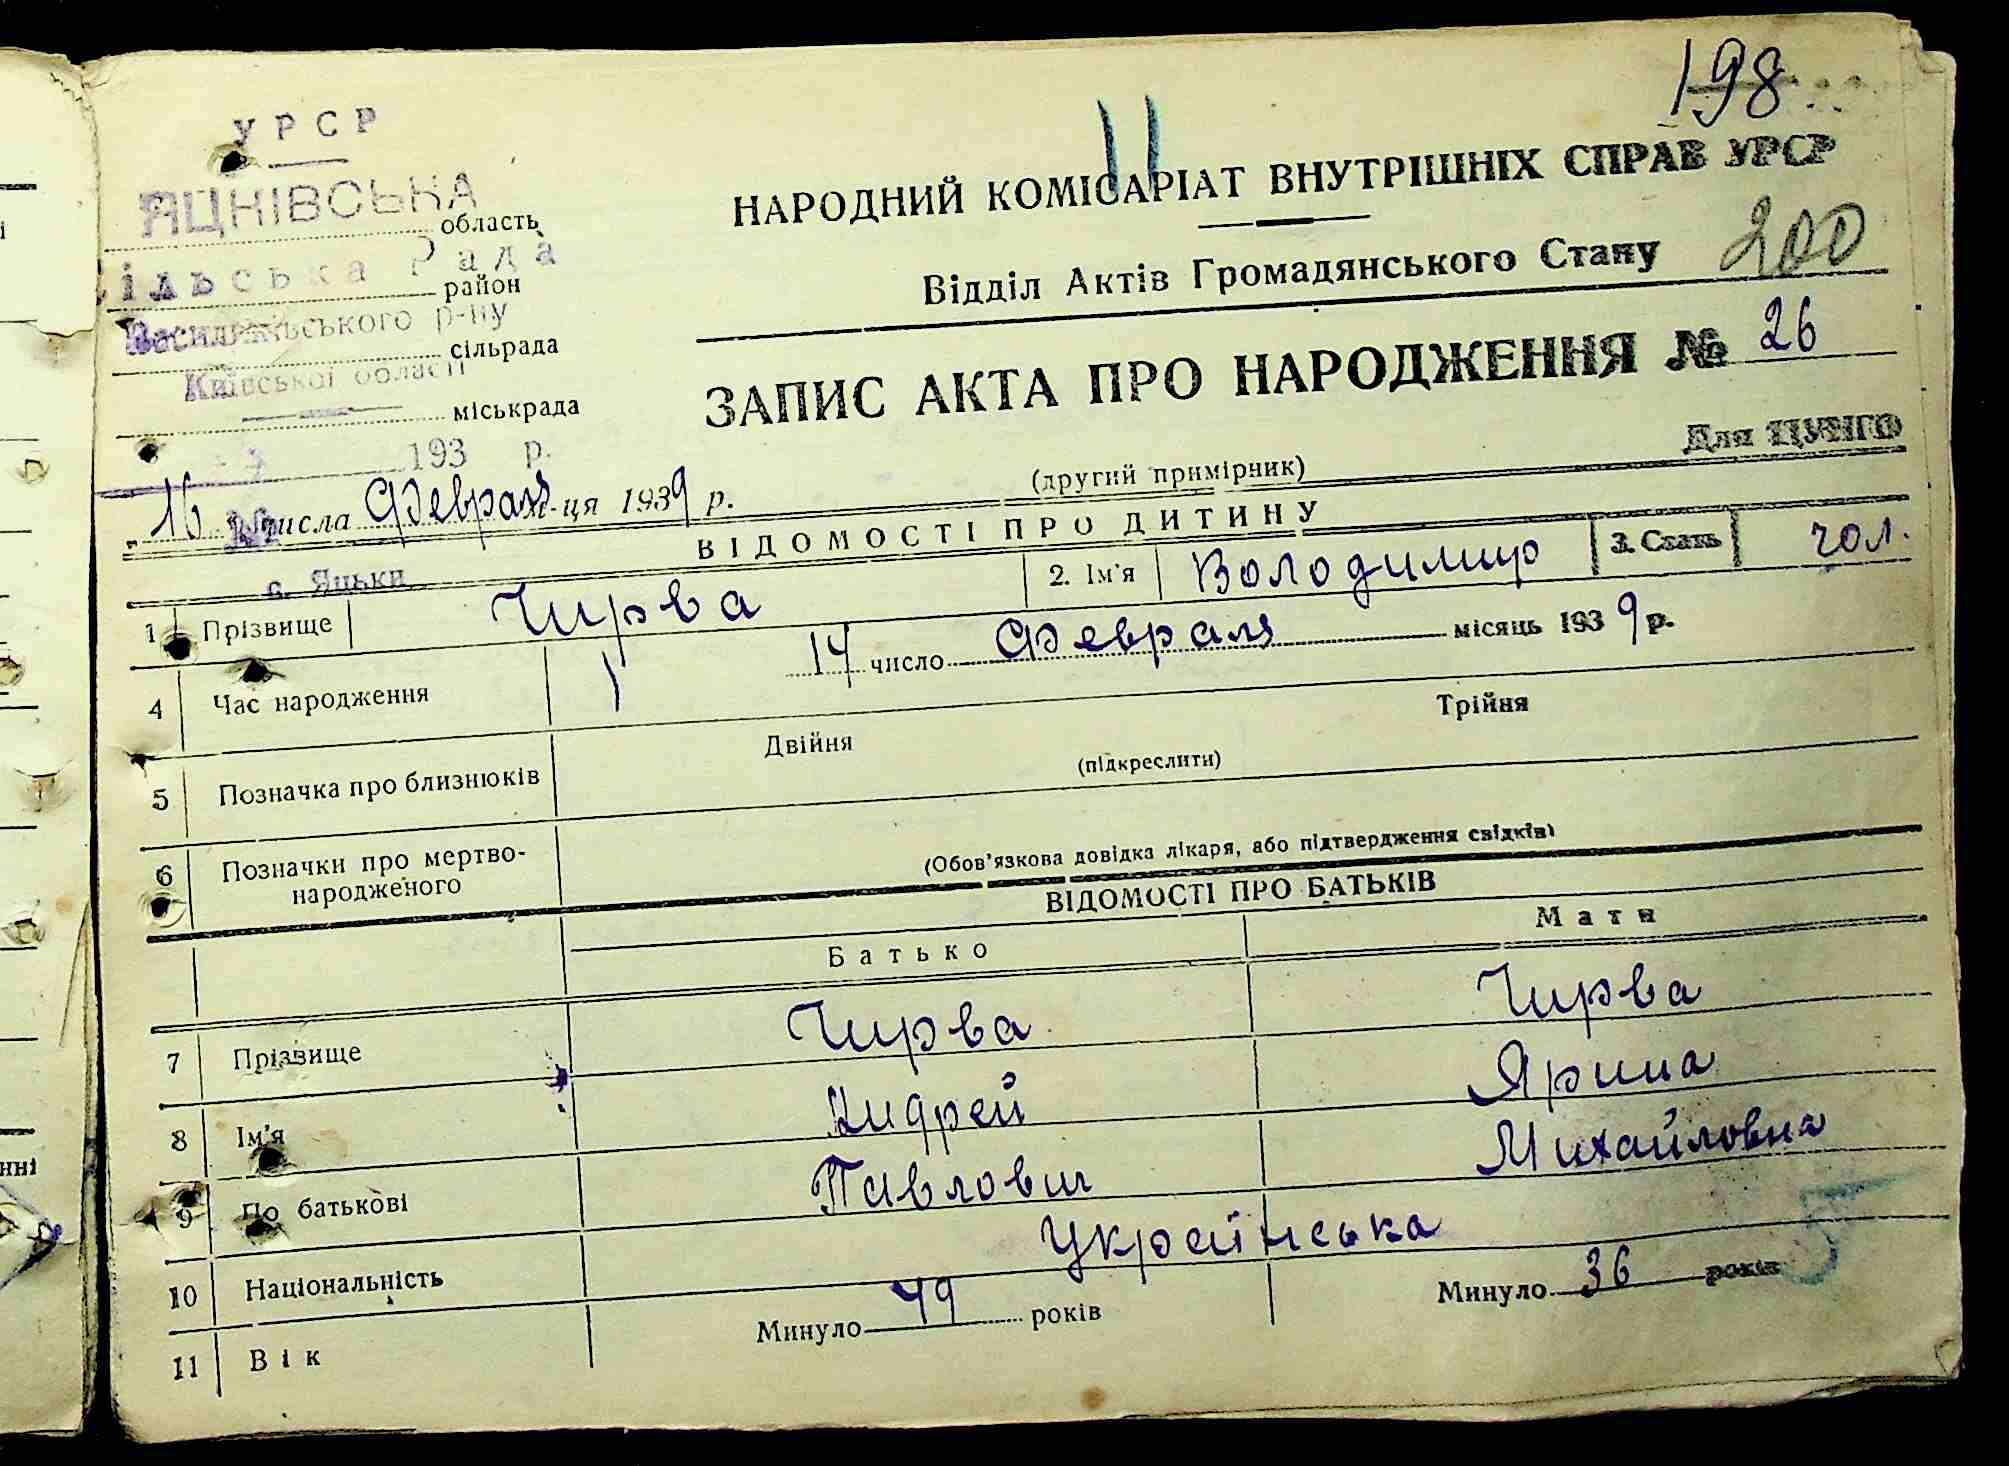 198
УРСР
ЯЦКІВСЬКА
область
Сільська Рада
район
Васильківського р-ну
сільрада
Київської області
міськрада
193 р.
№
с. Яцьки
11
НАРОДНИЙ КОМІСАРІАТ ВНУТРІШНІХ СПРАВ УРСР
Відділ Актів Громадянського Стану
200
ЗАПИС АКТА ПРО НАРОДЖЕННЯ № 26
Для ЦУНГО
(другий примірник)
16 числа Февраля м-ця 1939 р.
ВІДОМОСТІ ПРО ДИТИНУ
1 Прізвище Чирва 2. Ім'я Володимир 3. Стать чол.
4 Час народження 14 число Февраля місяць 1939 р.
5 Позначка про близнюків Двійня Трійня
(підкреслити)
6 Позначки про мертво-
народженого
(Обов'язкова довідка лікаря, або підтвердження свідків)
ВІДОМОСТІ ПРО БАТЬКІВ
Батько Мати
7 Прізвище Чирва Чирва
8 Ім'я Андрей Ярина
9 По батькові Павлович Михайловна
10 Національність Українська
11 Вік Минуло 49 років Минуло 36 років
5
нні